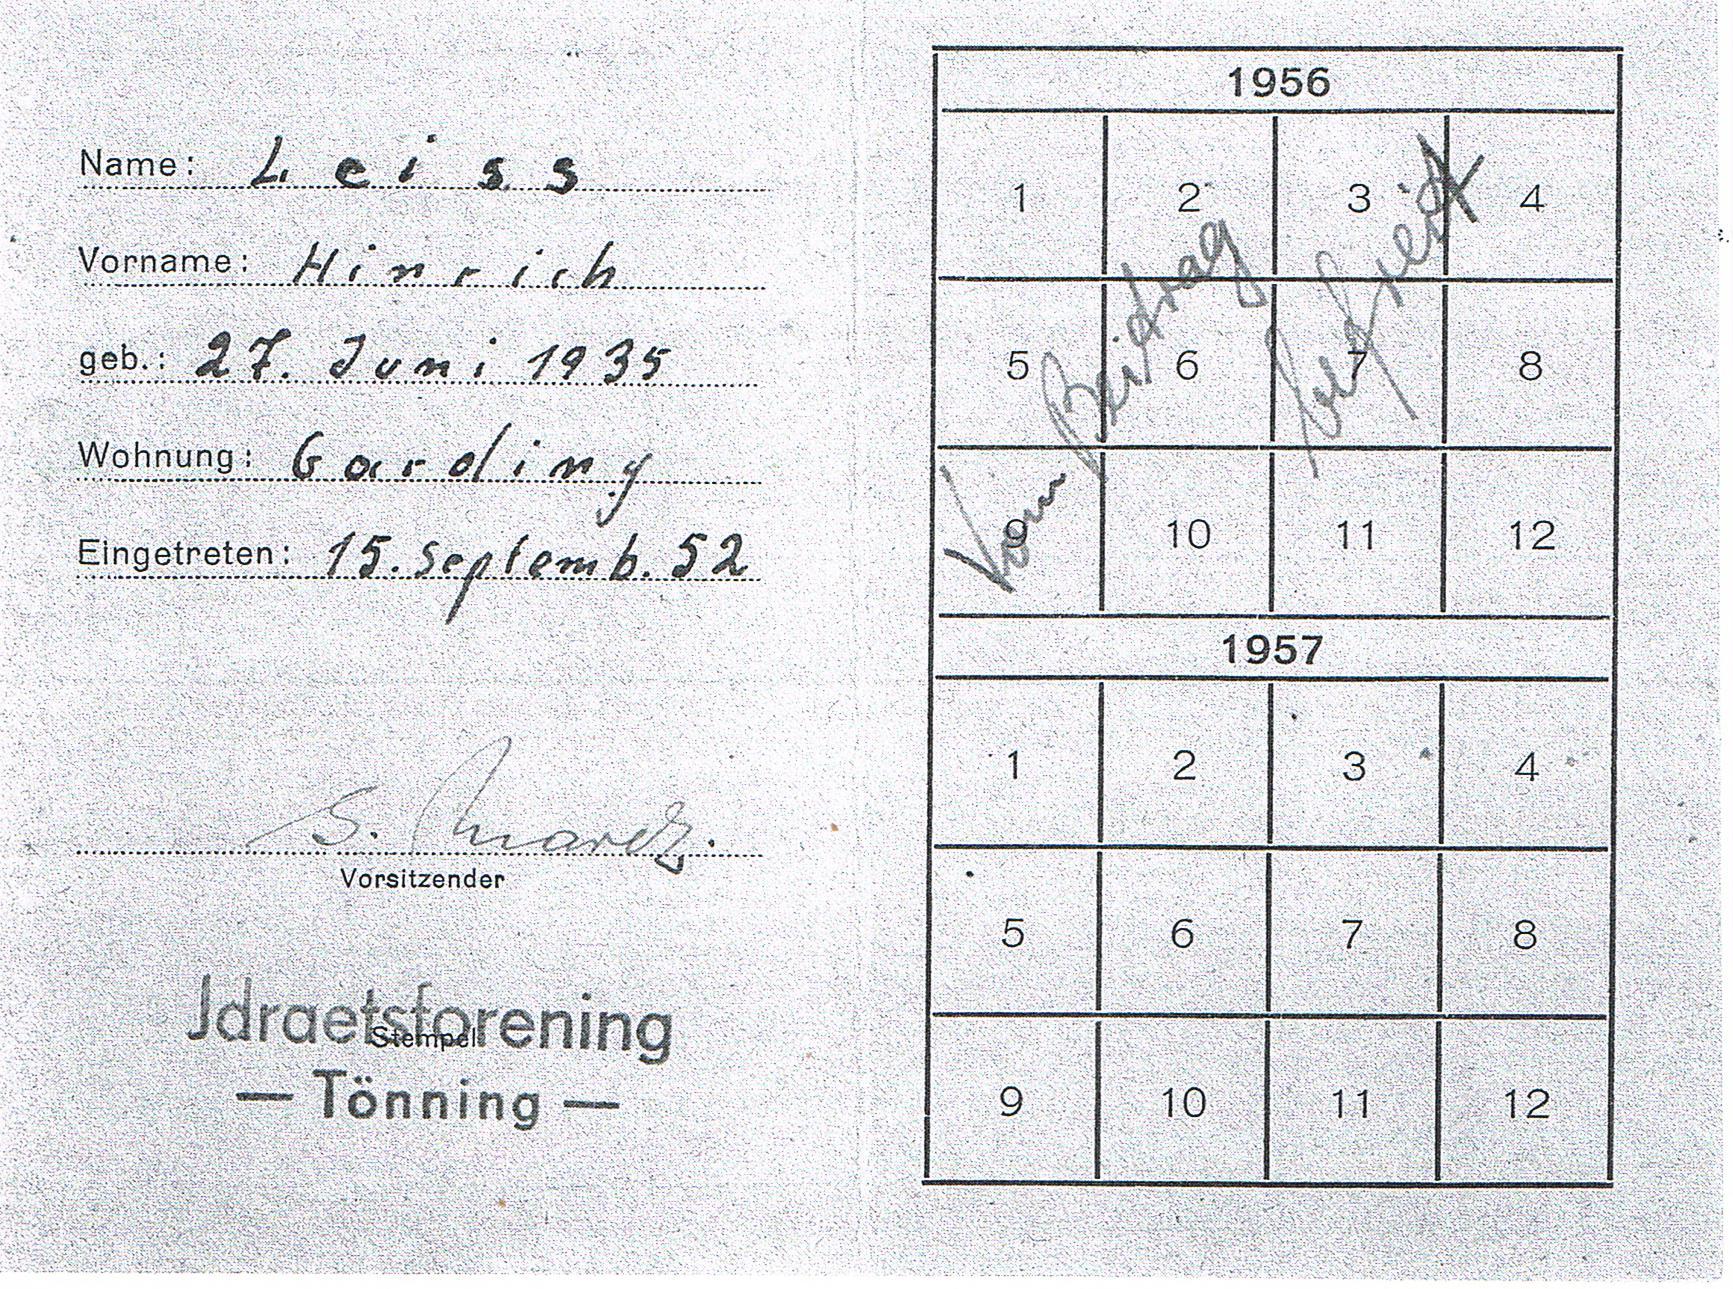 Name: Leiss
Vorname: Hinrich
geb.: 27. Juni 1935
Wohnung: Garding
Eingetreten: 15. Septemb. 52
Vorsitzender
Stempel
Jdraetsforening
— Tönning —
1956
1 2 3 4
5 6 7 8
9 10 11 12
Vom Beitrag befreit
1957
1 2 3 4
5 6 7 8
9 10 11 12